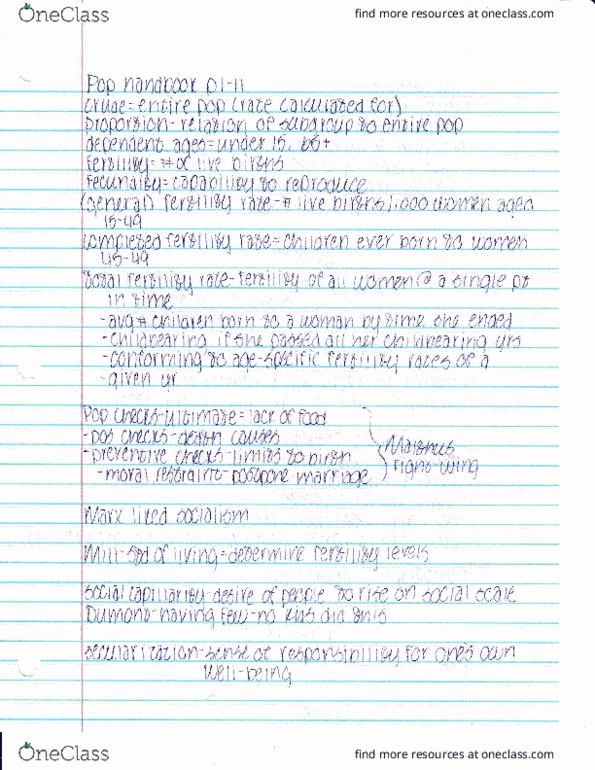 OneClass
find more resources at oneclass.com
Pop handbook p1-11
crude=entire pop (rate calculated for)
proportion- relation of subgroup to entire pop
dependent ages=under 15, 65+
fertility=# of live births
fecundity=capability to reproduce
(general) fertility rate-# live births/1,000 women aged
15-49
completed fertility rate=children ever born to women
45-49
total fertility rate-fertility of all women @ a single pt
in time
-avg # children born to a woman by time she ended
-childbearing if she passed all her childbearing yrs
-conforming to age-specific fertility rates of a
-given yr
Pop checks-ultimate=lack of food
-pos checks-death causes
-preventive checks-limits to birth
-moral restraint-postpone marriage
Malthus
right-wing
Marx liked socialism
Mill-std of living=determine fertility levels
social capillarity-desire of people to rise on social scale
Dumont-having few-no kids did this
secularization-sense of responsibility for one's own
well-being
OneClass
find more resources at oneclass.com